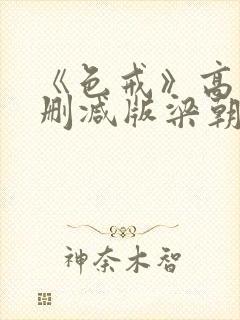 《色戒》高
删减版梁朝
神奈木智